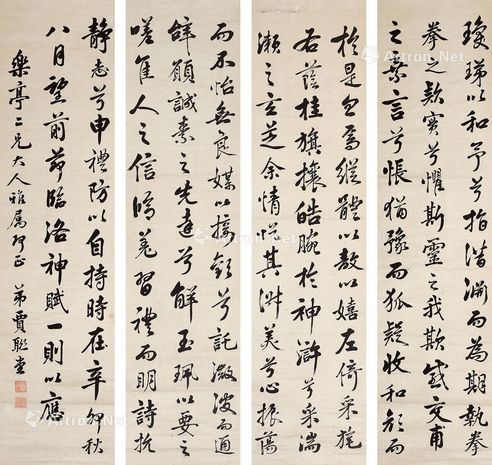 瓊珶以和予兮指潛淵而為期執拳
拳之款實兮懼斯靈之我欺感交甫
之棄言兮悵猶豫而狐疑收和顏而
於是忽焉縱體以敖以嬉左倚采旄
右蔭桂旗攘皓腕於神滸兮采湍
瀨之玄芝余情悅其淑美兮心振蕩
而不怡無良媒以接歡兮託微波而通
辭願誠素之先達兮解玉珮以要之
嗟佳人之信修羌習禮而明詩抗
靜志兮申禮防以自持時在辛卯秋
八月望前節臨洛神賦一則以應
樂亭二兄大人雅屬即正 弟賈聯堂